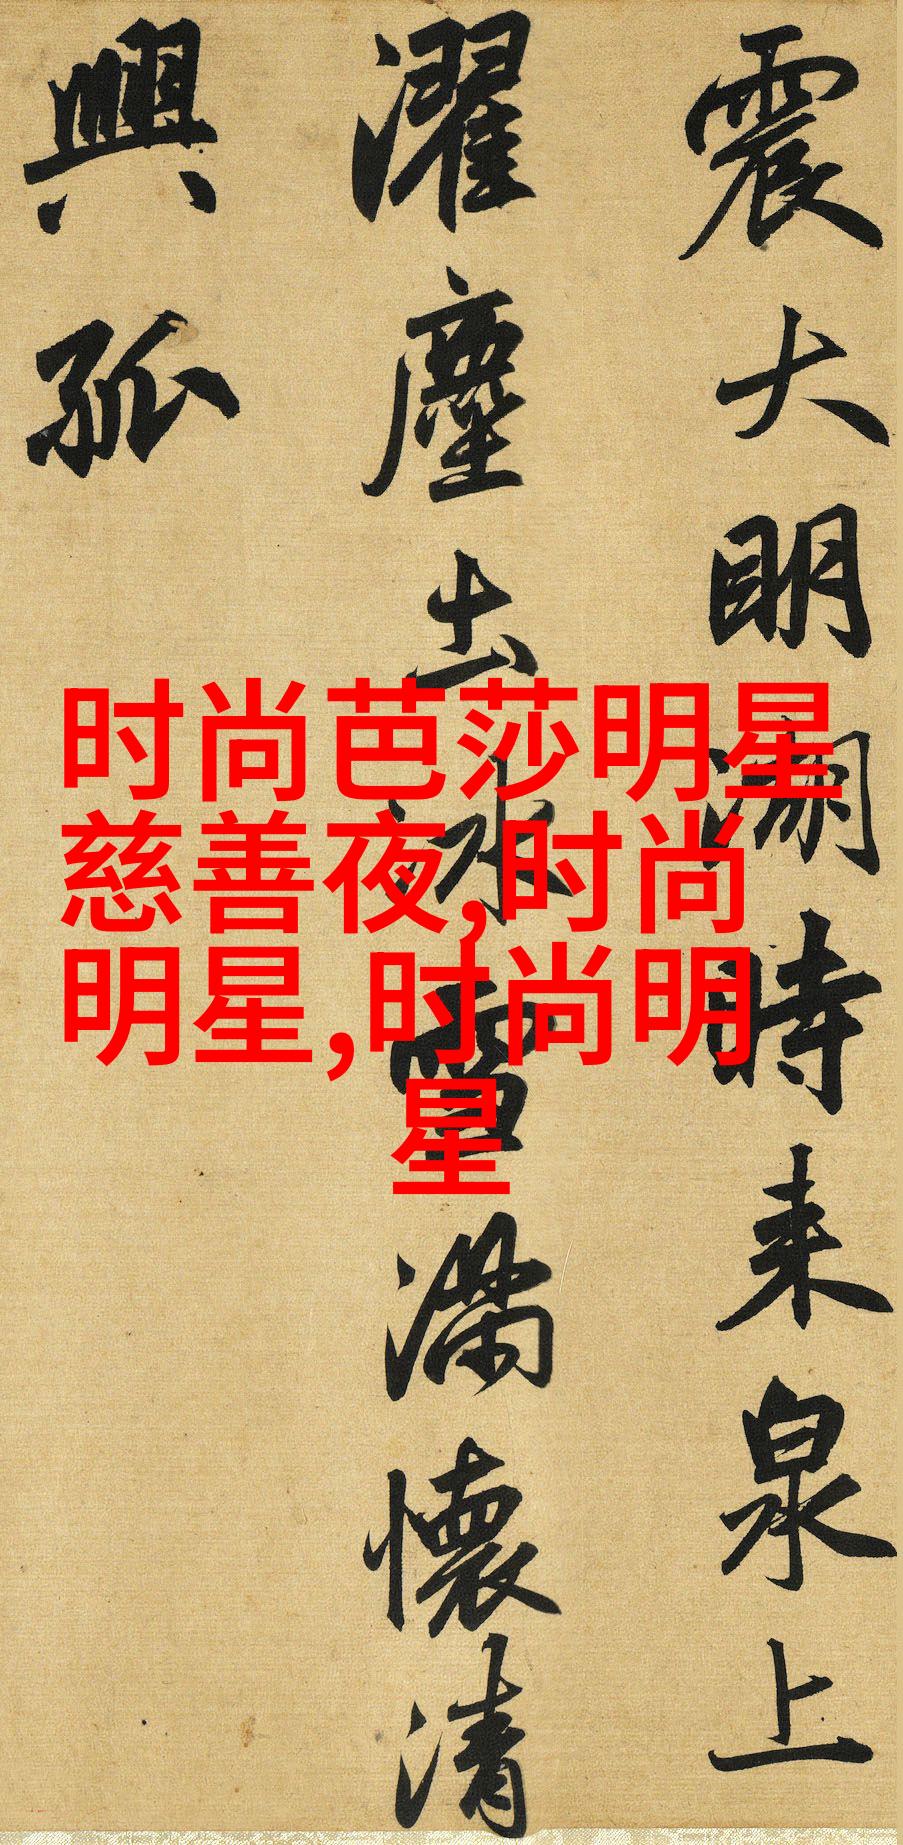 震大明湖時来泉上
濯塵土冰雪滿懷清
興孤
时尚芭莎明星
慈善夜,时尚
明星,时尚明
星